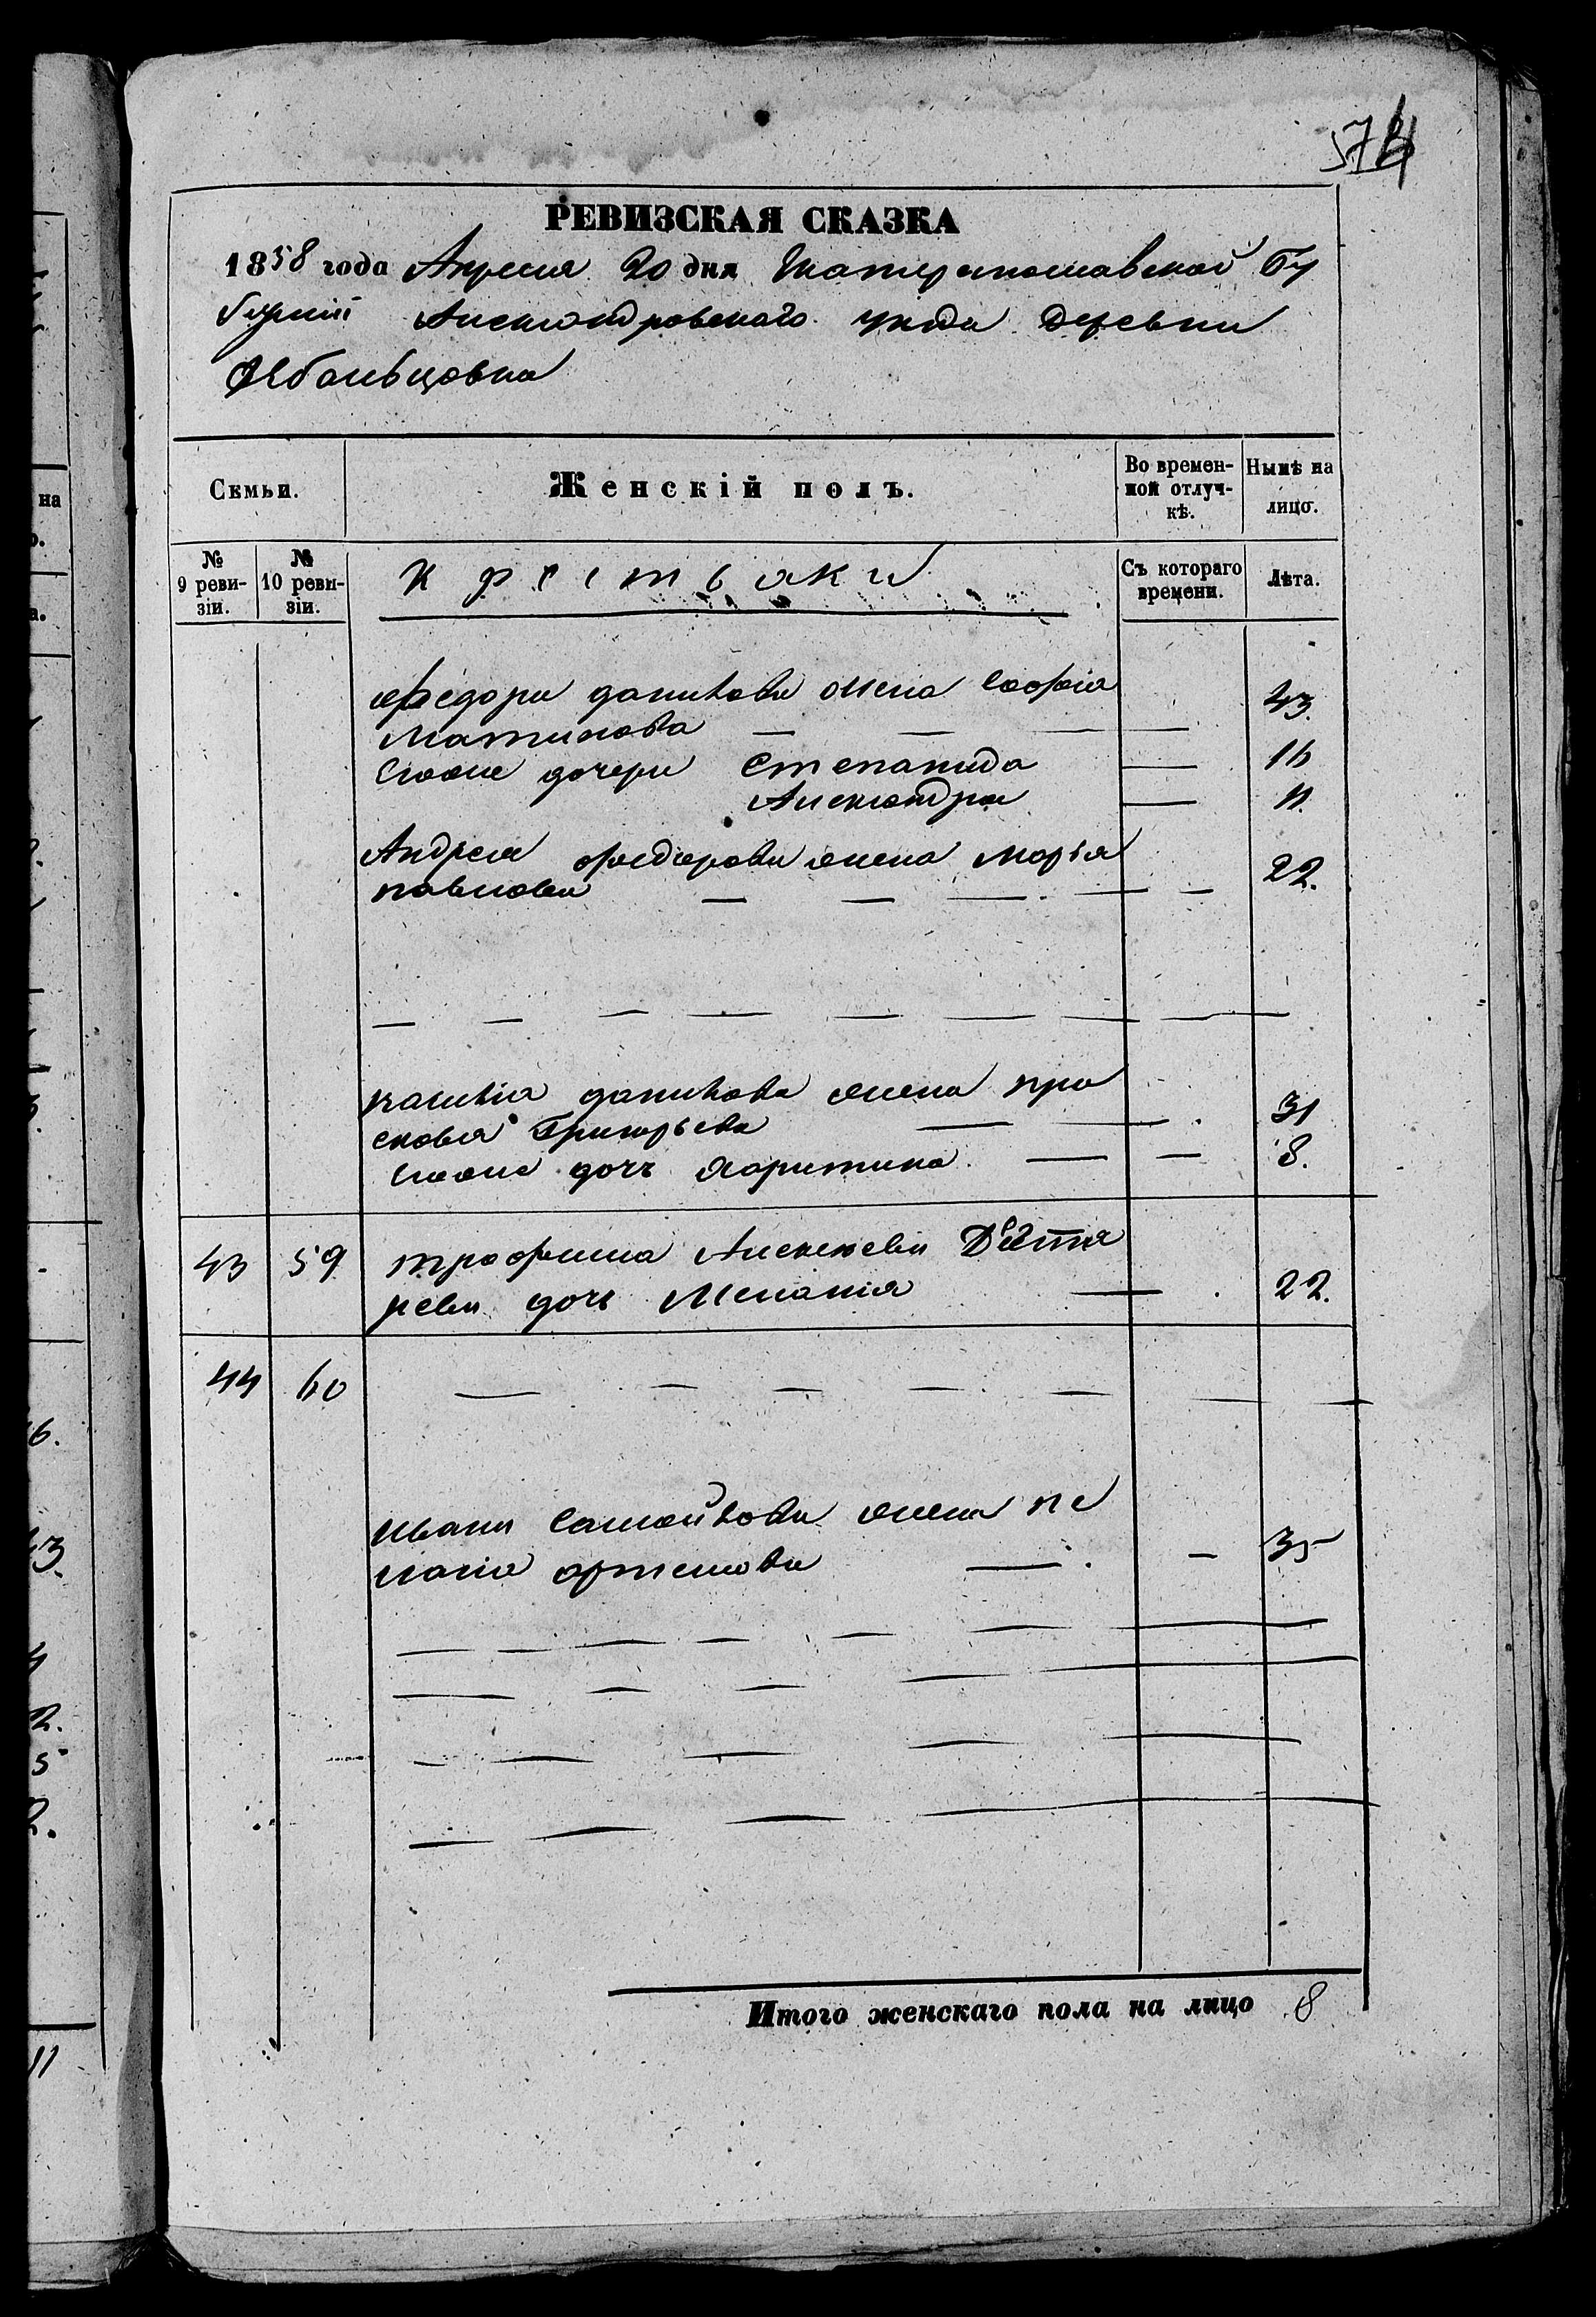 57
РЕВИЗСКАЯ СКАЗКА
1858 года Апреля 20 дня Екатеринославской Гу
бернiи Александровскаго уезда деревни
Семьи.
Женскiй полъ.
Во времен-
ной отлуч-
кѣ.
Нынѣ на
лицо.
№
9 реви-
зiи.
№
10 реви-
зiи.
Крестьяки
Съ котораго
времени.
Лѣта.
Федора данилова жена Софiя
43.
Матвѣова
Егоже дочери Степанида 16
Александра 11.
Андрея федорова жена Марья
22.
павлова
данилова жена пра
сковья Григорьева 31
Егоже дочь Харитина 8.
43 59 трофима Алексеева Дехтя
рева дочь Меланiя 22.
44 60
Ивана Самойлова жена пе
лагiя артемова 35
Итого женскаго пола на лицо 8
на
6.
3.
2.
5
2.
11